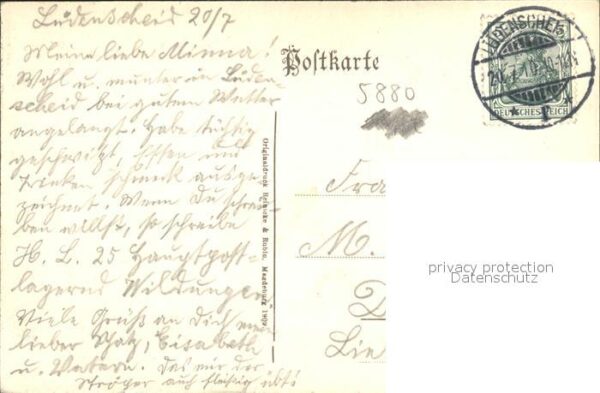 Lüdenscheid 20/7
Meine liebe Minna!
Wohl u. munter in Lüden-
scheid bei gutem Wetter
angelangt. Habe tüchtig
geschwitzt, Essen und
Trinken schmeckt ausge-
zeichnet. Wenn Du schrei-
ben willst, so schreibe
H. L. 25 Hauptpost-
lagernd Wildungen
Viele Grüße an Dich mein
lieber Schatz, Elisabeth
u. Vatern. Das mir der
auch fleißig übt!
Postkarte
5880
LÜDENSCHEID
DEUTSCHES REICH
Originaldruck Reinicke & Rubin, Magdeburg 1909
Fra
M.
D
Lie
privacy protection
Datenschutz